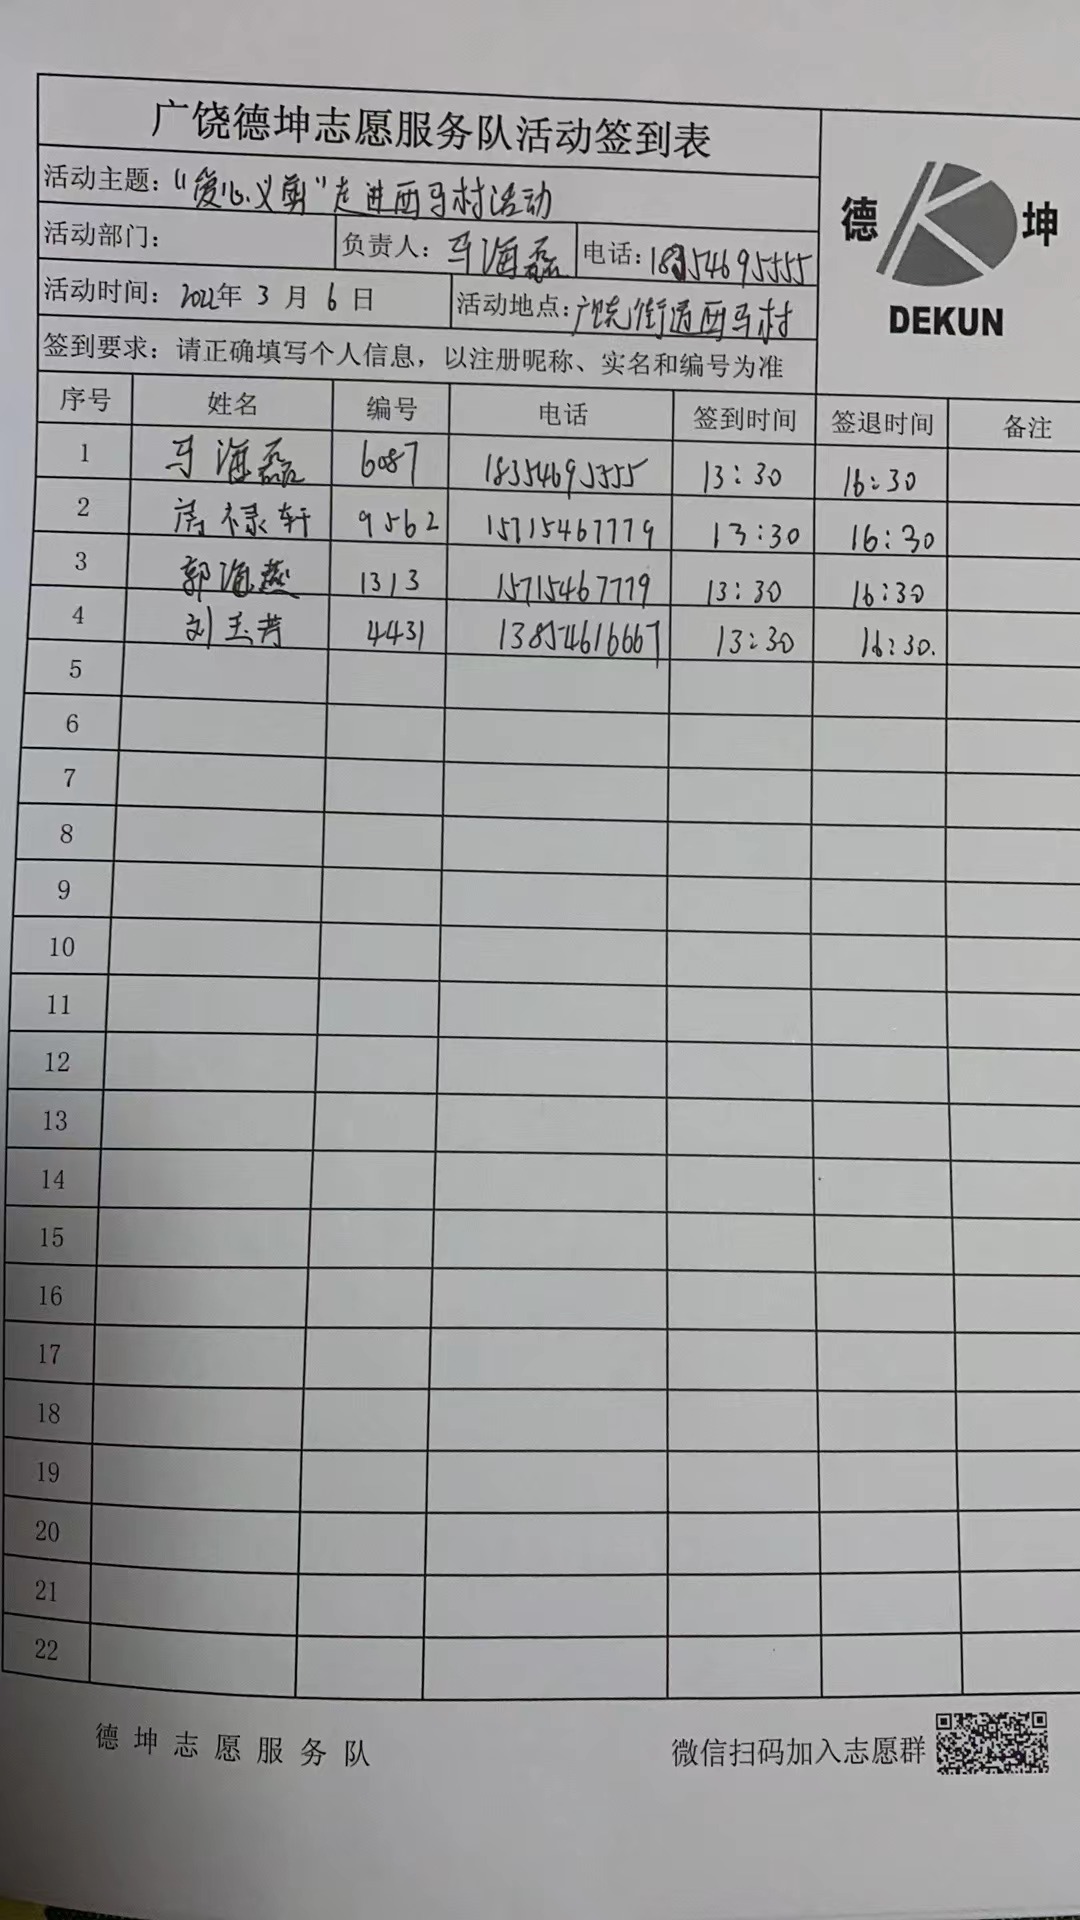 广饶德坤志愿服务队活动签到表
德 坤
DEKUN
活动主题：“爱心义剪”走进西马村活动
活动部门： 负责人：马海磊 电话：18354695555
活动时间：2022年 3 月 6 日 活动地点：广饶街道西马村
签到要求：请正确填写个人信息，以注册昵称、实名和编号为准
序号 姓名 编号 电话 签到时间 签退时间 备注
1 马海磊 6087 18354695555 13:30 16:30
2 禄轩 9562 15715467779 13:30 16:30
3 郭海燕 1313 15715467779 13:30 16:30
4 刘玉芳 4431 13854616667 13:30 16:30.
5
6
7
8
9
10
11
12
13
14
15
16
17
18
19
20
21
22
德坤志愿服务队 微信扫码加入志愿群